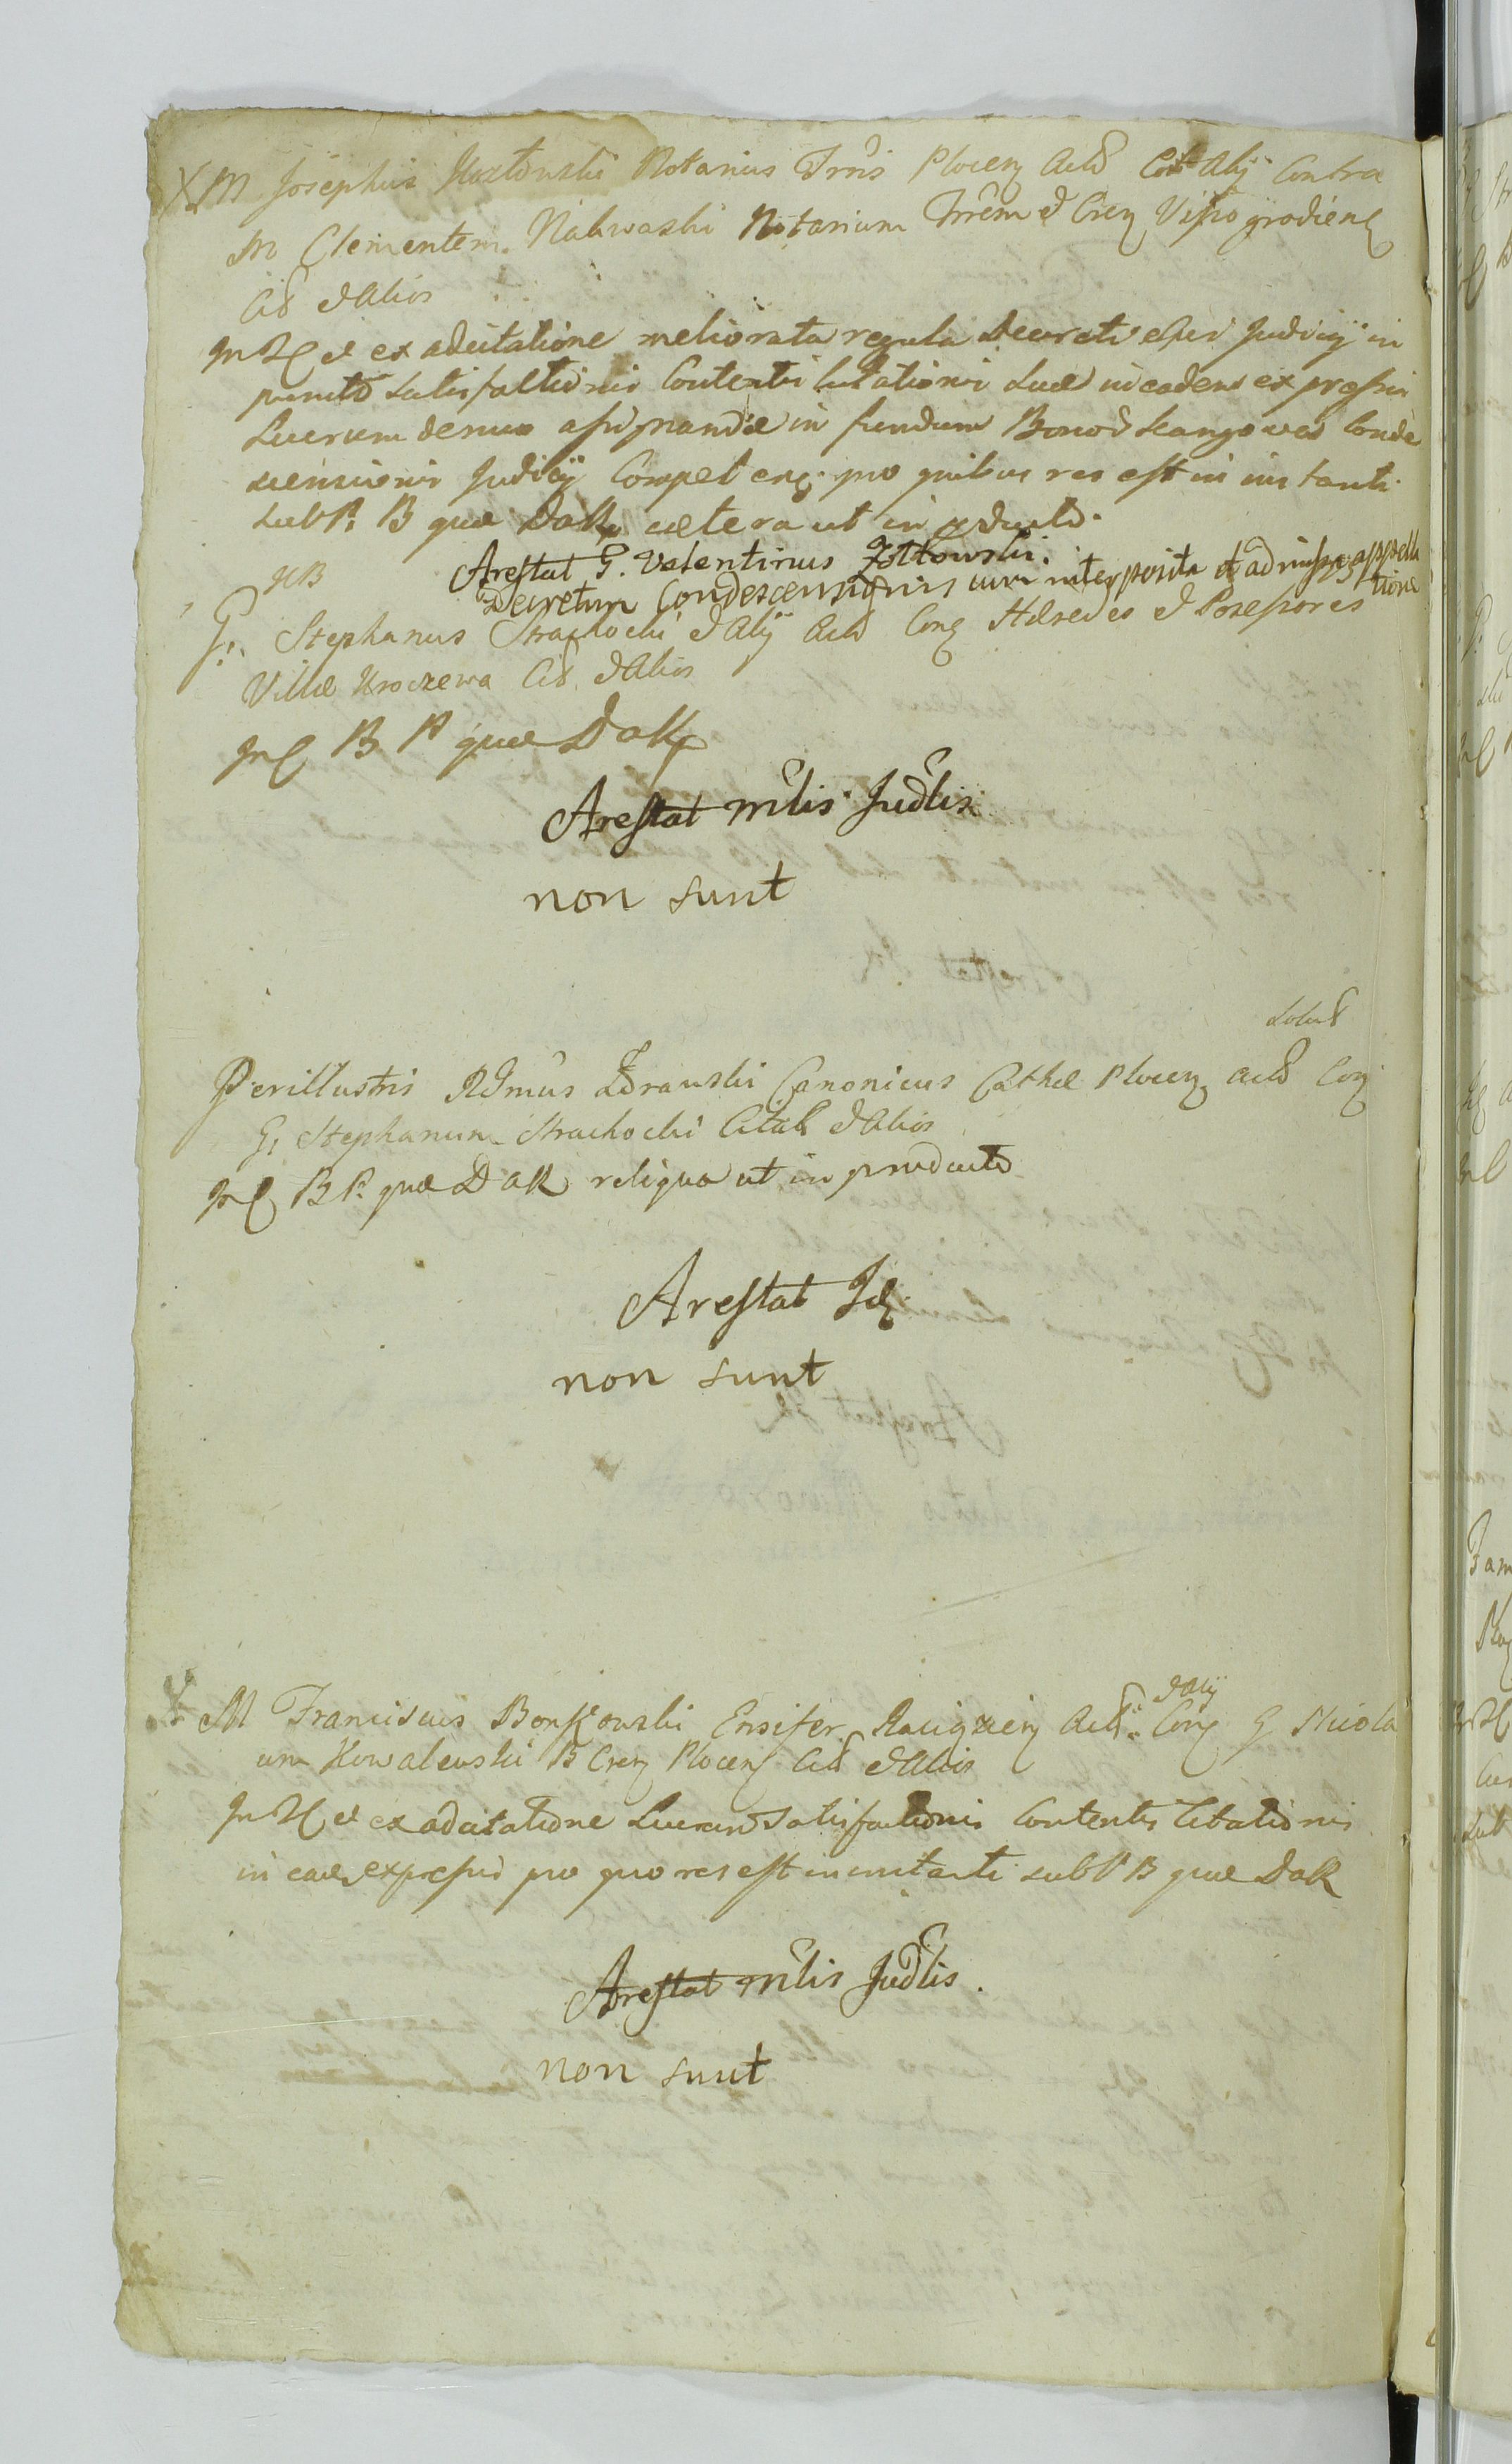 X M Josephus Kozłowski Notarius Trris Plocen Actor Cot Alij Contra
M Clementem Nakwaski Notarium Trrem et Cren Vissogrodien
Cit et Alios
In T et ex adcitatione meliorata regula Decreti esse Judicij in
puncto satisfactionis Contentis Citationis suae in eadem expressis
Lucrum denuo assignandae in fundum Bonor Conde
scensionis Judicij Competen pro quibus res est in instanti
sub P. B quae DaR caetera ut in producto.
NB Arestat G. Valentinus Zołtowski.
Decretum Condescensionis cum interposita et admissa appella
tione
G. Stephanus Strachocki et Alij Actor Con Haeredes et Possessores
Villae Kroczewa Cit et Alios
In B P quae DaR
Arestat mlis Judlis
non sunt
Solut
Perillustris Rdmus Zdranski Canonicus Cathae Plocen Actor Con
G. Stephanum Strachocki Citat et Alios
In B P. quae DaR reliqua ut in producto
Arestat Id
non sunt
X M Franciscus Bonkowski Ensifer Raciązien Actor et Alij Con G Nicola
um Kowalewski B Cren Plocen Cit et Alios
In T et ex adcitatione Lucrum Satisfactionis Contentis Citationis
in ead expressis pro quo res est in instanti sub P B quae DaR
Arestat mlis Judlis.
non sunt